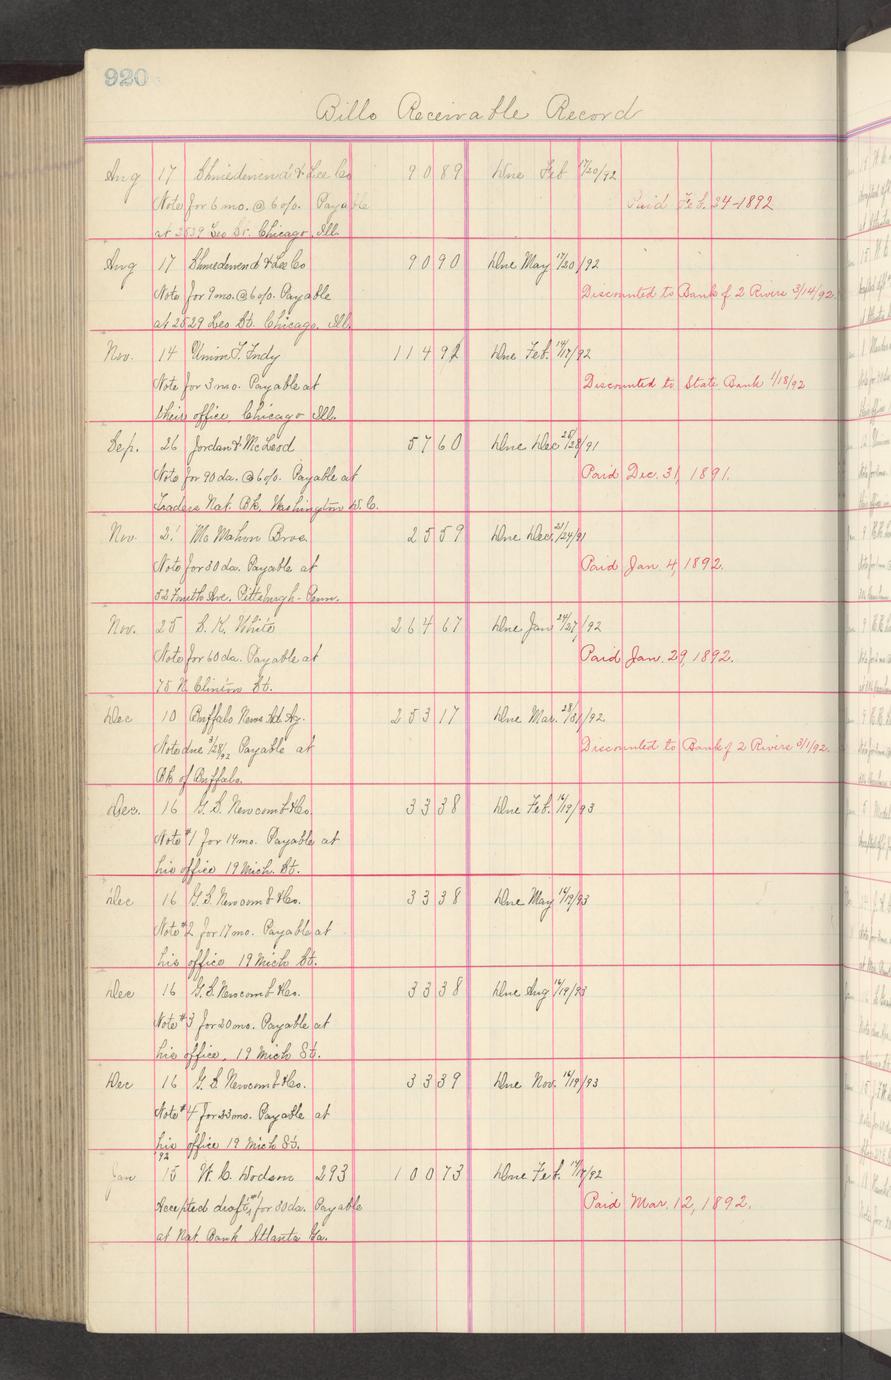 920
Bills Receivable Record
Aug 17 Shniedewend & Lee Co 90 89 Due Feb 17/20/92
Note for 6 mo. @ 6%. Payable Paid Feb. 24-1892
at 2529 Leo St. Chicago, Ill.
Aug 17 Shniedewend & Lee Co 90 90 Due May 17/20/92
Note for 9 mo. @ 6%. Payable Discounted to Bank of 2 Rivers 3/14/92.
at 2529 Leo St. Chicago, Ill.
Nov. 14 Union T. Fndy 114 92 Due Feb. 14/17/92
Note for 3 mo. Payable at Discounted to State Bank 1/18/92
their office, Chicago Ill.
Sep. 26 Jordan & McLeod 57 60 Due Dec 25/28/91
Note for 90 da. @ 6%. Payable at Paid Dec. 31, 1891.
Traders Nat. Bk. Washington D.C.
Nov. 21 McMahon Bros. 25 59 Due Dec. 21/24/91
Note for 30 da. Payable at Paid Jan. 4, 1892.
52 Fourth Ave. Pittsburgh-Penn.
Nov. 25 S. K. White 264 67 Due Jan 24/27/92
Note for 60 da. Payable at Paid Jan. 29, 1892.
75 N. Clinton St.
Dec 10 Buffalo News Ad. Ay. 253 17 Due Mar. 28/31/92.
Note due 3/28/92 Payable at Discounted to Bank of 2 Rivers 3/1/92.
Bk of Buffalo.
Dec. 16 G. S. Newcomb & Co. 33 38 Due Feb. 16/19/93
Note #1 for 14 mo. Payable at
his office 19 Mich. St.
Dec 16 G. S. Newcomb & Co. 33 38 Due May 16/19/93
Note #2 for 17 mo. Payable at
his office 19 Mich St.
Dec 16 G. S. Newcomb & Co. 33 38 Due Aug 16/19/93
Note #3 for 20 mo. Payable at
his office, 19 Mich St.
Dec 16 G. S. Newcomb & Co. 33 39 Due Nov. 16/19/93
Note #4 for 23 mo. Payable at
his office 19 Mich St.
'92
Jan 15 W. C. Dodson 293 100 73 Due Feb. 14/17/92
Accepted draft #1, for 30 da. Payable Paid Mar. 12, 1892.
at Nat. Bank Atlanta Ga.